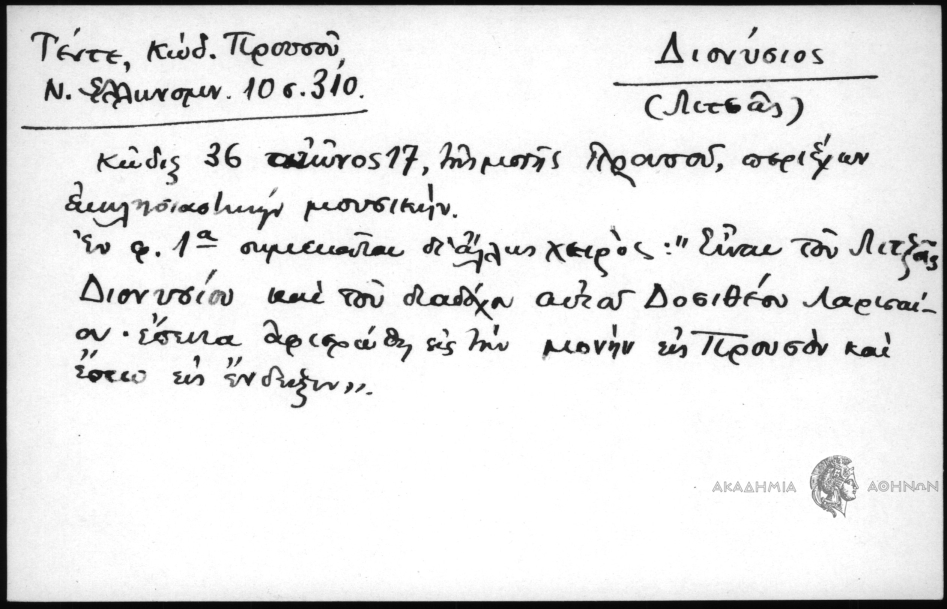 Τέντε, Κώδ. Προυσοῦ, Διονύσιος
Ν. Ἑλληνομν. 10 σ. 310. (Λιτσᾶς)
Κῶδιξ 36 αἰῶνος 17, τῆς μονῆς Προυσοῦ, περιέχων
ἐκκλησιαστικὴν μουσικήν.
Ἐν φ. 1α σημειοῦται δι' ἄλλης χειρὸς: "Εἶναι τοῦ Λιτζᾶς
Διονυσίου καὶ τοῦ διαδόχου αὐτοῦ Δοσιθέου Λαρισαί-
ου· ἔπειτα ἀφιερώθη εἰς τὴν μονὴν εἰς Προυσὸν καὶ
ἔστω εἰς ἔνδειξιν".
ΑΚΑΔΗΜΙΑ ΑΘΗΝΩΝ